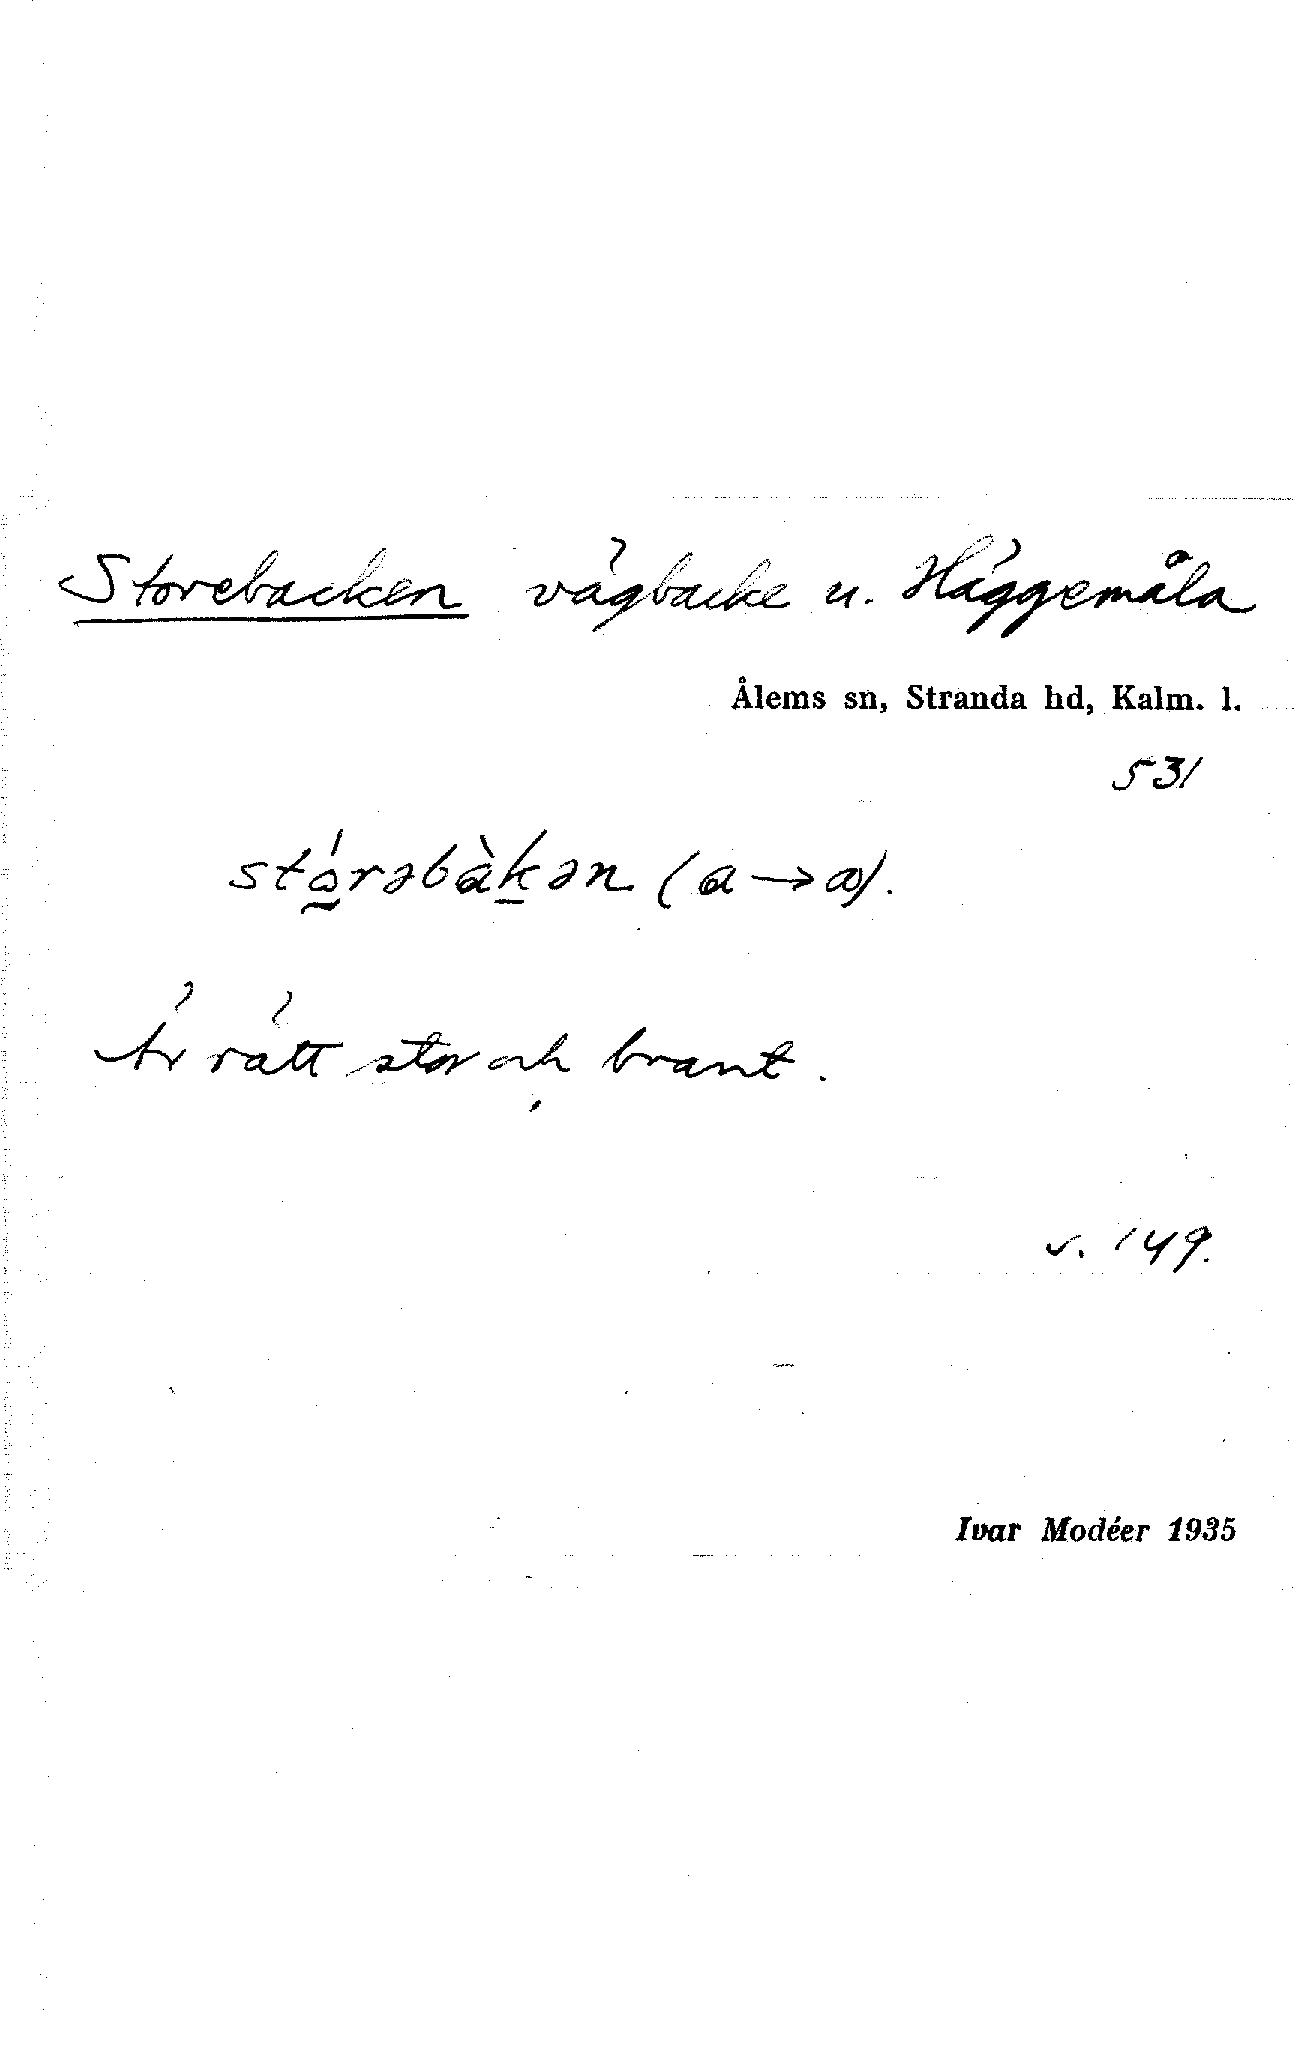 Storebacken vägbacke u. Häggemåla
Ålems sn, Stranda hd, Kalm. l.
531
stó̰rəbàḵən (a → ꝏ).
Är rätt stor och brant.
v. 149.
Ivar Modéer 1935